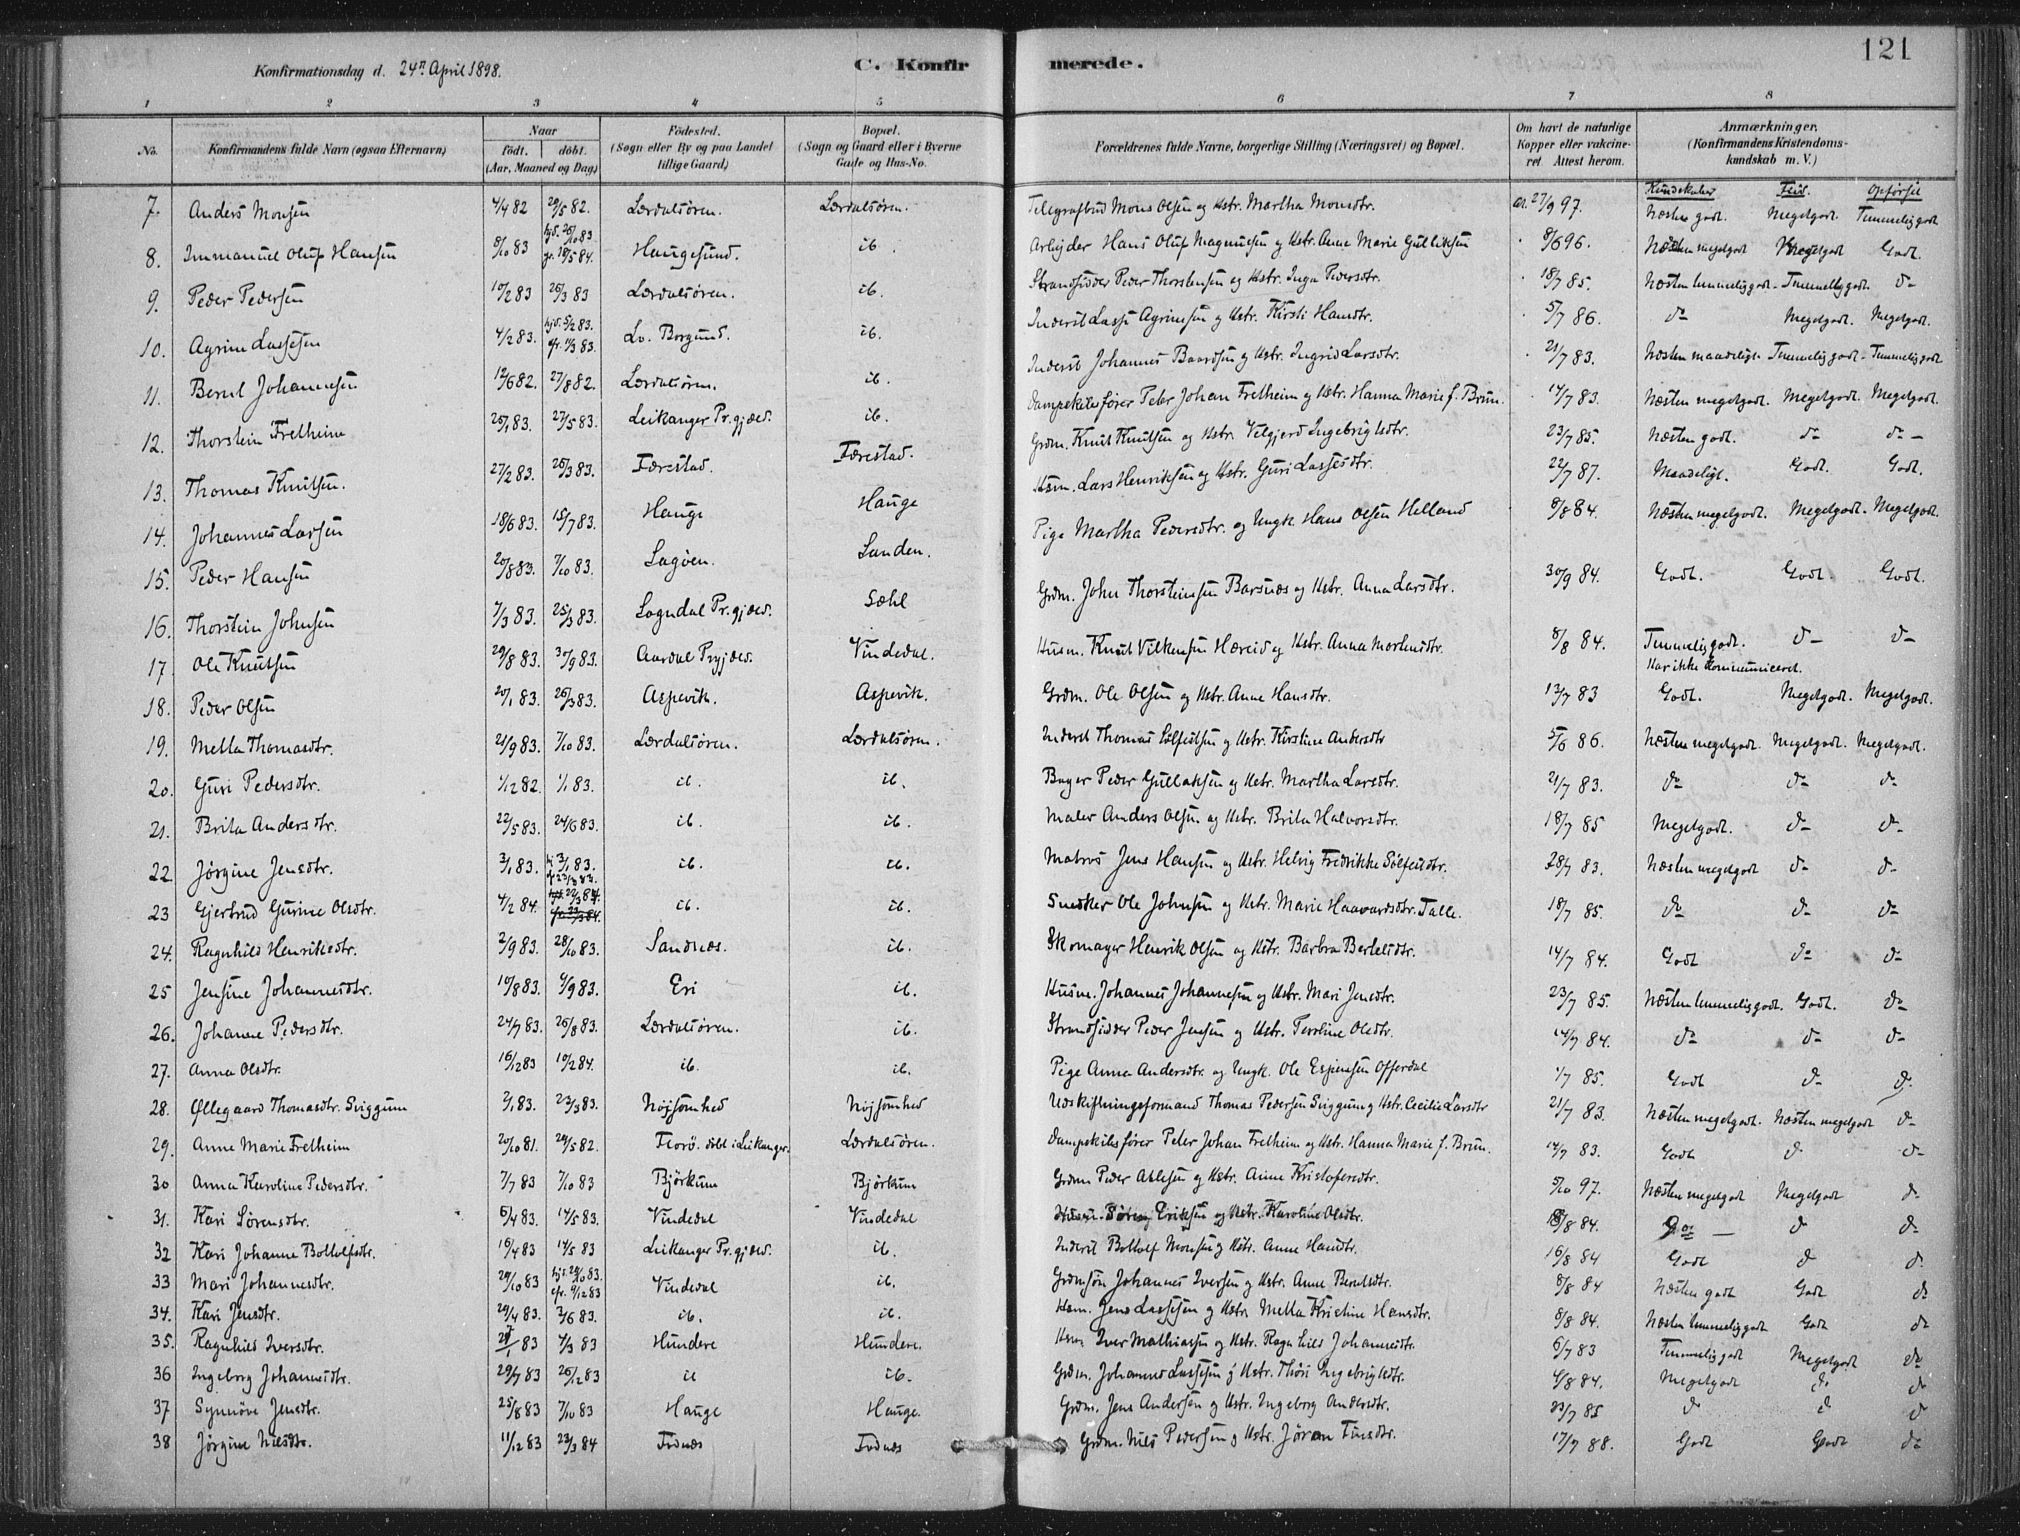 Konfirmationsdag d. 24n April 1898.
C. Konfirmerede.
121
1 2 3 4 5 6 7 8
No. Konfirmandens fulde Navn (ogsaa Efternavn) Naar födt. döbt. (Aar, Maaned og Dag) Födested. (Sogn eller By og paa Landet tillige Gaard) Bopæl. (Sogn og Gaard eller i Byerne Gade og Hus-No. Forældrenes fulde Navne, borgerlige Stilling (Næringsvei) og Bopæl. Om havt de naturlige Kopper eller vakcineret. Attest herom. Anmærkninger. (Konfirmandens Kristendomskundskab m. V.)
Kundskaber Flid. Opførsel
7. Anders Monsen 4/4 82 29/5 82. Lærdalsören. Lærdalsören. Telegrafbud Mons Olsen og Hstr. Martha Monsdtr. 27/9 97. Næsten godt. Megetgodt. Temmeliggodt
8. Immanuel Oluf Hansen 8/10 83 hjd. 26/10 83 Haugesund. ib. Arbejder Hans Oluf Magnusen og Hstr. Anne Marie Gulliksen 8/6 96. Næsten megetgodt Megetgodt Godt.
9. Peder Pedersen 10/2 83 26/3 83 Lærdalsören. ib. Strandsidder Peder Thorstensen og Hstr. Inga Pedersdtr. 18/7 85. Næsten temmeliggodt. Temmeliggodt. do
10. Agrim Lassesen 4/2 83. hjd. 5/2 83. fr. 11/3 83. Lv. Borgund. ib. Inderst Lasse Agrimsen og Hstr. Kirsti Hansdtr. 5/7 86. do Megetgodt. Megetgodt.
11. Bernt Johannesen 12/6 82. 27/8 82. Lærdalsören. ib. Inderst Johannes Baardsen og Hstr. Ingrid Larsdtr. 21/7 83. Næsten maadeligt. Temmeliggodt. Temmeliggodt
12. Thorstein Fretheim 25/1 83. 27/5 83. Leikanger Pr.gjæld. ib. Dampskibsfører Peter Johan Fretheim og Hstr. Hanna Marie f. Brun. 14/7 83. Næsten megetgodt. Megetgodt. Megetgodt.
13. Thomas Knutsen. 27/2 83. 26/3 83. Færestad. Færestad. Grdm. Knut Knutsen og Hstr. Velgjerd Ingebrigtsdtr. 23/7 85. Næsten godt. do do
14. Johannes Larsen 18/6 83. 15/7 83. Hauge Hauge Hsm. Lars Henriksen og Hstr. Guri Lassesdtr. 22/7 87. Maadeligt. Godt. Godt.
15. Peder Hansen 20/8 83. 7/10 83. Lagöen. Sanden. Pige Martha Pedersdtr. og Ungk. Hans Olsen Helland 8/8 84. Næsten megetgodt. Megetgodt. Megetgodt.
16. Thorstein Johnsen 7/3 83. 25/3 83. Sogndal Pr.gjæld. Sæhl Grdm. John Thorsteinsen Barsnæs og Hstr. Anna Larsdtr. 30/9 84. Godt. Godt. Godt.
17 Ole Knutsen 29/8 83. 30/9 83. Aardal Prgjæld. Vindedal. Husm. Knut Vilkensen Hæreid og Hstr. Anna Mortensdtr. 8/8 84. Temmeliggodt. Har ikke kommuniceret. do do
18. Peder Olsen 20/1 83. 26/3 83. Aspevik. Aspevik. Grdm. Ole Olsen og Hstr. Anne Hansdtr. 13/7 83 Godt. Megetgodt. Megetgodt.
19. Metta Thomasdtr. 21/9 83. 7/10 83. Lærdalsören. Lærdalsören. Inderst Thomas Sølfestsen og Hstr. Kirstine Andersdtr 5/6 86. Næsten megetgodt. Megetgodt. Megetgodt.
20. Guri Pedersdtr. 1/12 82. 1/1 83. ib. ib. Bager Peder Gullaksen og Hstr. Martha Larsdtr. 21/7 83. do do do
21. Brita Andersdtr. 22/5 83. 24/6 83. ib. ib. Maler Anders Olsen og Hstr. Brita Halvorsdtr. 18/7 85 Megetgodt. do do
22. Jørgine Jensdtr. 3/1 83. hj. 3/1 83. ib. ib. Matros Jens Hansen og Hstr. Helvig Fredrikke Sölfestsdtr. 28/7 83. Næsten megetgodt do do
23 Gjertrud Gurine Olsdtr. 4/2 84. ib. ib. Snedker Ole Johnsen og Hstr. Marie Haavardsdtr. Talle. 18/7 85. do do do
24. Ragnhild Henriksdtr. 2/9 83. 28/10 83. Sandnæs. ib. Skomager Henrik Olsen og Hstr. Barbra Bertelsdtr. 14/7 84. Godt do do
25 Jensine Johannesdtr. 10/8 83. 9/9 83. Eri ib. Husm. Johannes Johannesen og Hstr. Mari Jensdtr. 23/7 85. Næsten temmeliggodt. Godt. do
26. Johanne Pedersdtr. 24/7 83. 26/8 83. Lærdalsören. ib. Strandsidder Peder Jensen og Hstr. Teroline Olsdtr. 14/7 84. do do do
27. Anna Olsdtr. 16/12 83 10/2 84. ib. ib. Pige Anna Andersdtr. og Ungk. Ole Espensen Offerdal 1/7 85. Godt do do
28. Øllegaard Thomasdtr. Sviggum 2/1 83. 23/3 83. Nöjsomhed Nöjsomhed Udskiftningsformand Thomas Pedersen Sviggum og Hstr. Cecilie Larsdtr 21/7 83. Næsten megetgodt. Næsten megetgodt do
29. Anne Marie Fretheim 20/10 81. 29/5 82. Florö. döbt i Leikanger. Lærdalsören. Dampskibsfører Peter Johan Fretheim og Hstr. Hanna Marie f. Brun. 14/7 83. Godt do do
30 Anna Karoline Pedersdtr. 7/7 83 7/10 83 Björkum Björkum Grdm Peder Atlesen og Hstr. Anne Kristofersdtr. 5/10 97. Næsten megetgodt Megetgodt do
31. Kari Sörensdtr. 6/4 83 14/5 83. Vindedal Vindedal Husm. Sören Eriksen og Hstr. Karoline Olsdtr. 8/8 84. do do do
32 Kari Johanne Bottolfsdtr. 16/4 83 14/5 83 Leikanger Pr.gjæld. ib. Inderst Bottolf Monsen og Hstr. Anne Hansdtr. 16/8 84 Godt do do
33 Mari Johannesdtr. 29/10 83 hjd. 29/10 83. cfr. 9/12 83 Vindedal ib. Grdmsön Johannes Iversen og Hstr. Anne Berntsdtr. 8/8 84 Næsten godt Godt do
34. Kari Jensdtr. 29/4 83. 3/6 83. ib. ib. Hsm. Jens Lassesen og Hstr. Metta Kristine Hansdtr. 8/8 84. Næsten temmeliggodt Godt do
35. Ragnhild Iversdtr. 83 4/3 83 Hundere Hundere. Hsm Iver Mathiassen og Hstr. Ragnhild Johannesdtr. 6/7 83 Temmeliggodt Megetgodt do
36 Ingeborg Johannesdtr. 29/7 83 26/12 83 ib ib. Grdm. Johannes Lassesen og Hstr. Thöri Ingebrigtsdtr. 4/8 84. Megetgodt do do
37 Synnöve Jensdtr. 25/8 83 7/10 83 Hauge Hauge. Grdm. Jens Andersen og Hstr. Ingeborg Andersdtr. 23/7 85 do do do
38 Jørgine Nilsdtr. 11/12 83 23/3 84 Frdnæs Frdnæs Grdm. Nils Pedersen og Hstr. Jøran Finsdtr. 17/7 88. Godt Godt do